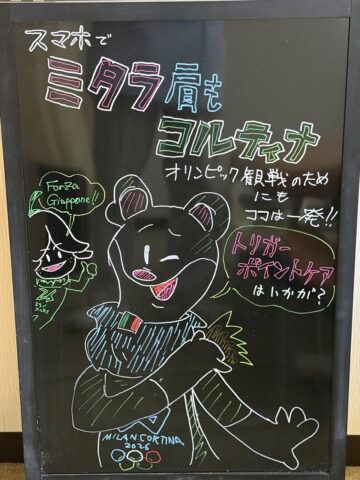 スマホで
ミタラ肩も
コルティナ
オリンピック観戦のため
にも
ココは一発!!
Forza
Giappone!!
トリガー
ポイントケア
はいかが?
MILAN.CORTINA
2026